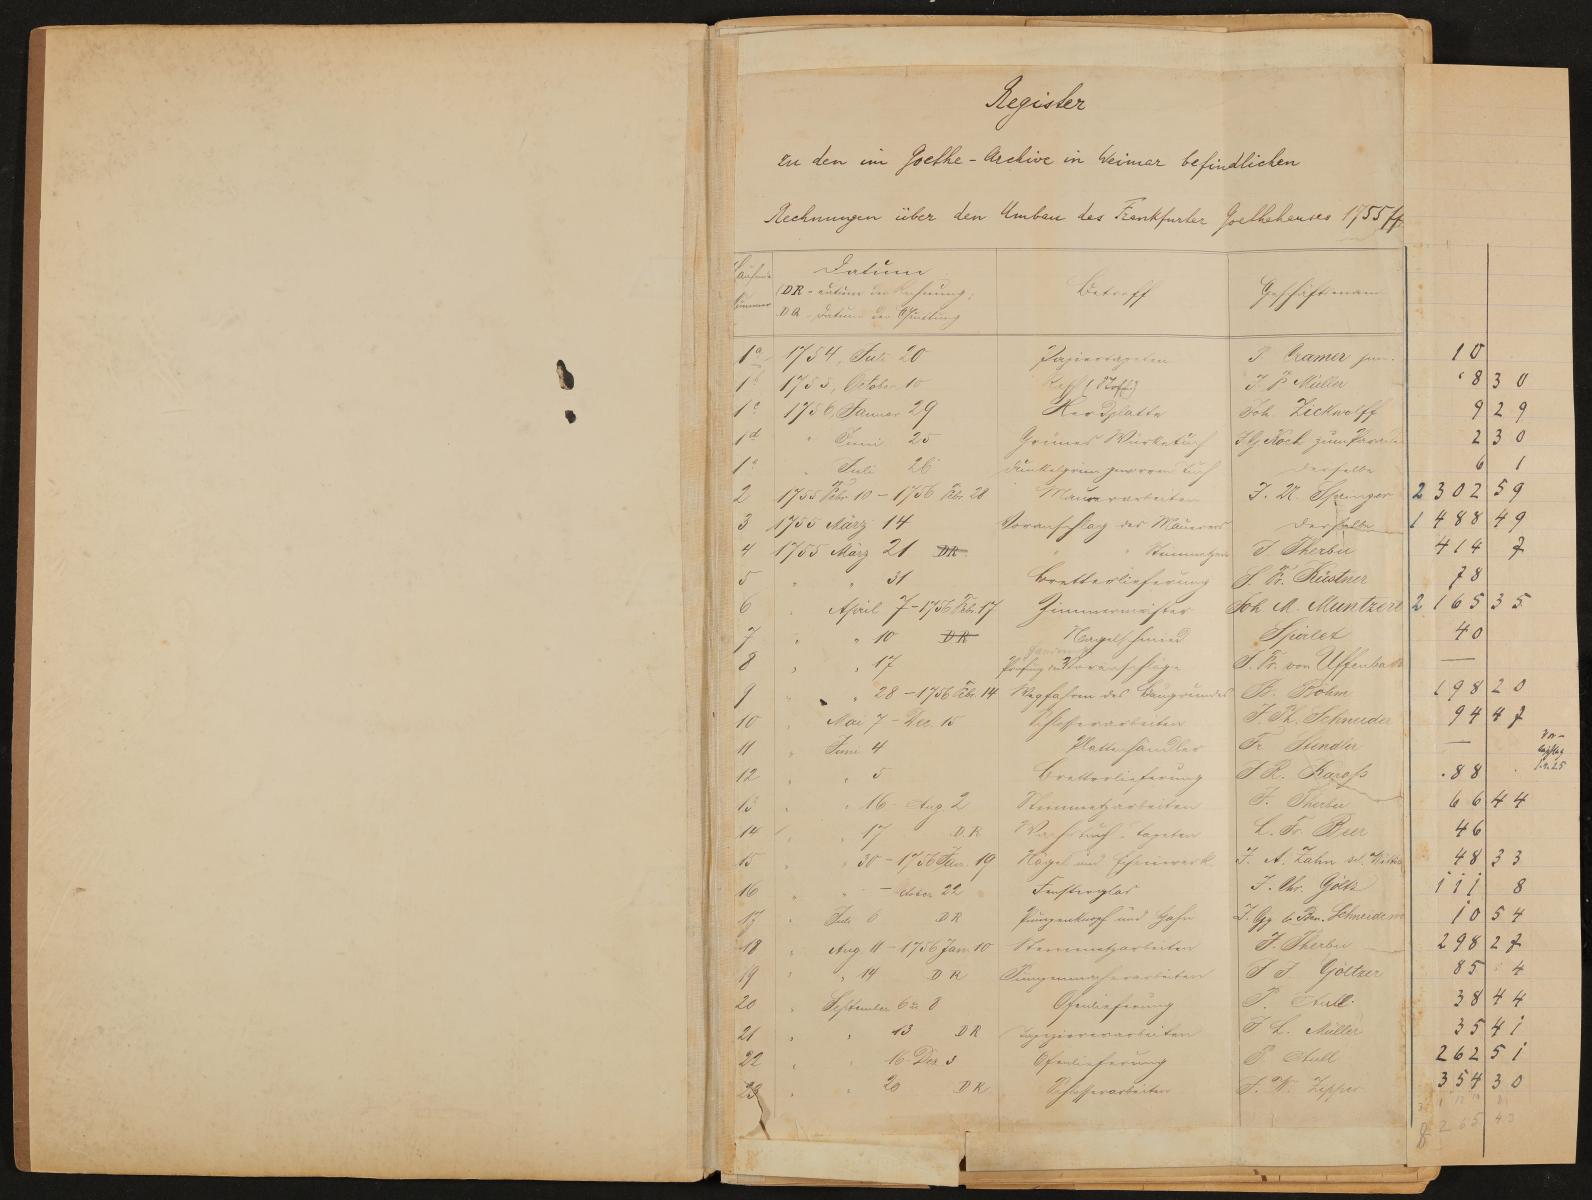 Register
zu den im Goethe-Archive in Weimar befindlichen
Rechnungen über den Umbau des Frankfurter Goethehauses 1755 ff
Laufende Nummer Datum Betreff Geschäftsmann
(DR = Datum der Rechnung;
DQ = Datum der Quittung
1a 1754, Juli 20 Papiertapeten P. Cramer jun. 10
1b 1755, October 10 (Stoff) J. P. Müller 8 30
1c 1756, Januar 29 Herdplatte Joh. Zickwolff 9 29
1d " Juni 25 Grünes Wachstuch J G Koch zum 2 30
1e " Juli 26 dunkelgrün Tuch derselbe 6 1
2 1755 Febr. 10 - 1756 Febr. 28 Maurerarbeiten J. M. Springer 2302 59
3 1755 März 14 Voranschlag des Maurers derselbe 1488 49
4 1755 März 21 DR " " Steinmetzen J. Therbu 414 7
5 " " 31 Bretterlieferung J. Fr. Küstner 78
6 " April 7 - 1756 Febr. 17 Zimmermeister Joh. M. Muntzer 2165 35
7 " " 10 DR Nagelschmied Spörlet 40
8 " " 17 Prüfung der Voranschläge J. Fr. von Uffenbach —
9 " " 28 - 1756 Febr. 14 Wegfahren des Baugrundes B. Böhm 198 20
10 " Mai 7 - Dec. 15 Schlosserarbeiten J. Ph. Schneider 94 47
11 " Juni 4 Plattenhändler Fr. Stendler —
12 " " 5 Bretterlieferung J R. Karass 88
13 " " 16 - Aug 2 Steinmetzarbeiten J. Therbu 66 44
14 " " 17 DR Wachstuch-Tapeten L. Fr. Beer 46
15 " " 30 - 1756 Jan. 19 Nägel und J. A. Zahn sel. Wittib 48 33
16 " " - October 22 Fensterglas J. Chr. Göltz 111 8
17 " Juli 6 DR Pumpenknopf und Hahn J. Gg & Ben. Schneide 10 54
18 " Aug 11 - 1756 Jan 10 Steinmetzarbeiten J. Therbu 298 27
19 " " 14 DR Pumpenmacherarbeiten J J. Göltzer 85 4
20 " September 6 u. 8 Ofenlieferung P. Aull 38 44
21 " " 13 DR Tapeziererarbeiten J L. Müller 35 41
22 " " 16 - Dez 3 Ofenlieferung P Aull 262 51
23 " " 20 DR Schlosserarbeiten J. W. Zipper 354 30
8 265 43